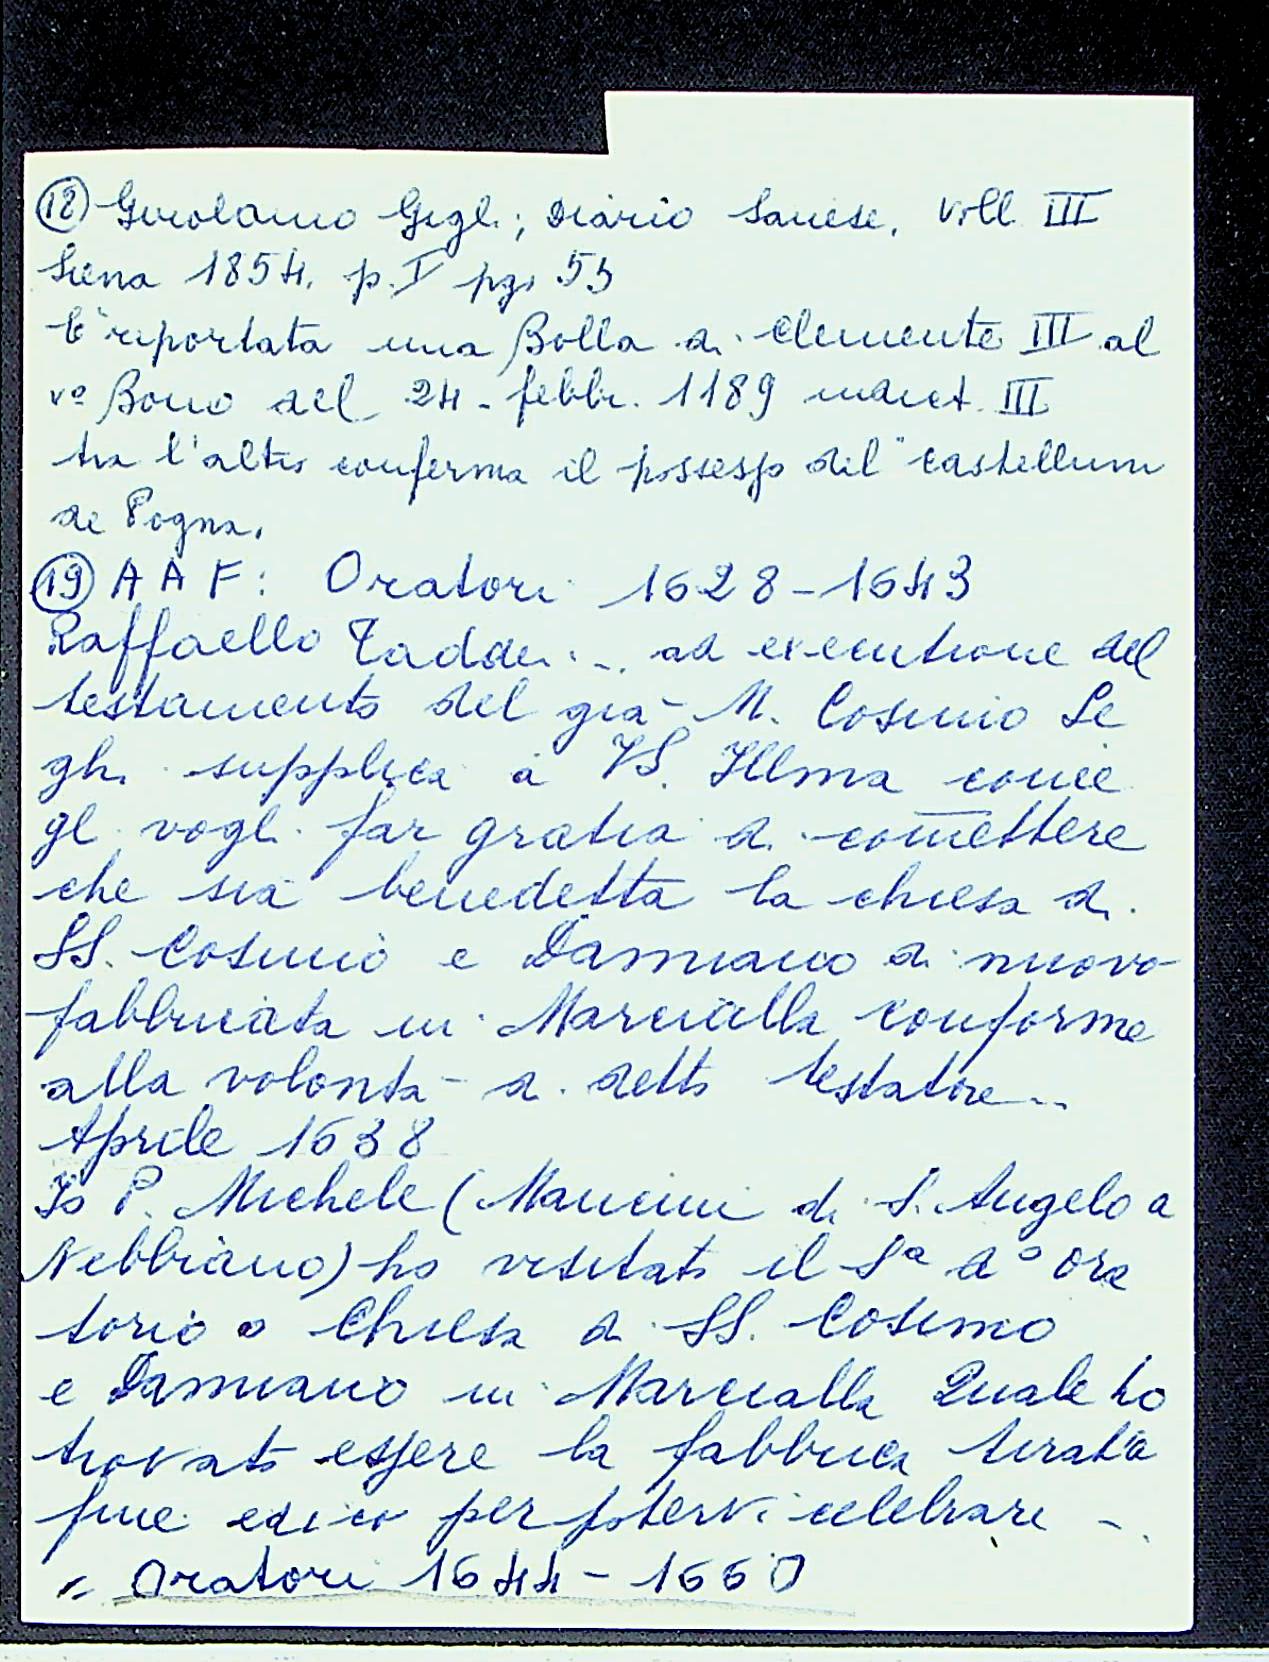 (18) Girolamo Gigli; Diario Sanese, voll III
Siena 1854. p. I pg. 53
E' riportata una Bolla di Clemente III al
v° Bono del 24 febbr. 1189 indict. III
tra l'altro conferma il possesso del "castellum
de Pogna.
(19) A A F: Oratori 1628-1643
Raffaello Taddei ... ad executione del
testamento del già M. Cosimo Le
ghi supplica à VS. Illma come
gl vogli far gratia di comettere
che sia benedetta la chiesa di
SS. Cosimo e Damiano di nuovo
fabbricata in Marcialla conforme
alla volontà di detto testatore...
Aprile 1638
Io P. Michele (Mancini di S. Angelo a
Nebbiano) ho visitato il S.a d° Ora
torio o Chiesa di SS. Cosimo
e Damiano in Marcialla Quale ho
trovato essere la fabbrica tirata à
fine per potervi celebrare ...
" Oratori 1644-1660